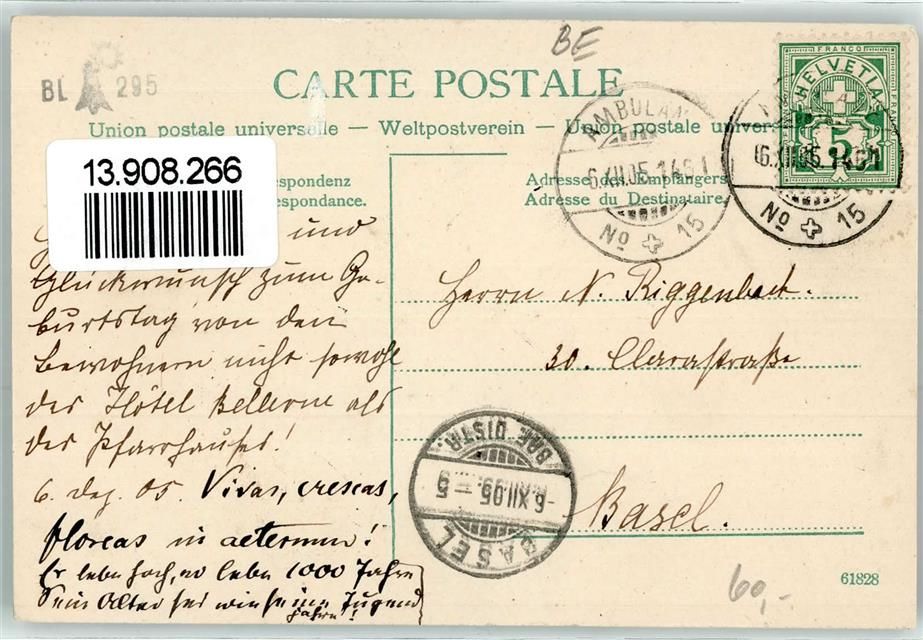 BE
BL 295
CARTE POSTALE
Union postale universelle — Weltpostverein — Union postale univers
13.908.266
espondenz
espondance.
Adresse des Empfängers
Adresse du Destinataire.
FRANCO
HELVETIA
5
AMBULAN
6.XII.05.
No 15
No 15
und
Glückwunsch zum Ge-
burtstag von den
Bewohnern nicht sowohl
des Hôtel Bellevue als
des Pfarrhauses!
6. Dez. 05. Vivas, crescas,
floreas in aeternum!
Er lebe hoch, er lebe 1000 Jahre
Sein Alter sei wie seine Jugend
Jahre!
Herrn N. Riggenbach.
30. Clarastraße
Basel.
BASEL
-6.XII.05-5
DISTR.
60,-
61828